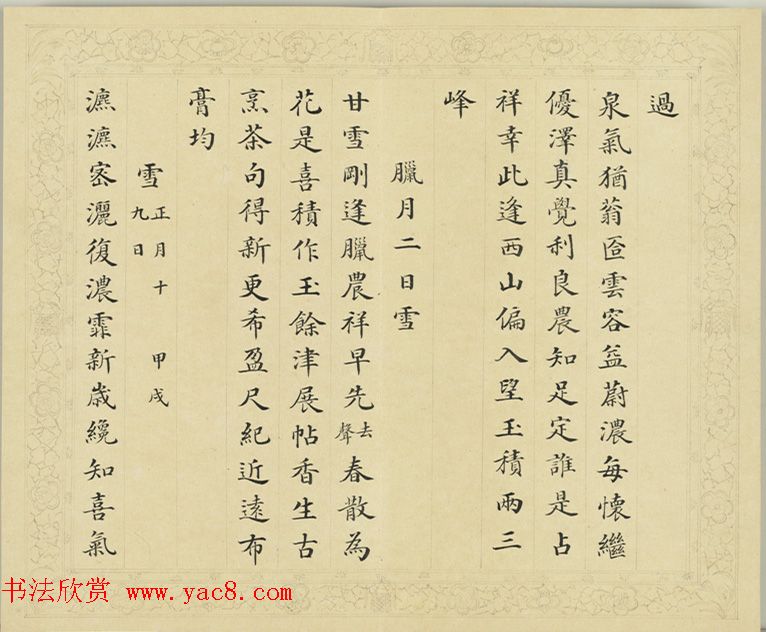 過
泉氣猶蓊匌雲容益蔚濃每懷繼
優澤真覺利良農知足定誰是占
祥幸此逢西山偏入望玉積兩三
峰
臘月二日雪
甘雪剛逢臘農祥早先去聲春散為
花是喜積作玉餘津展帖香生古
烹茶句得新更希盈尺紀近遠布
膏均
雪正月十九日 甲戌
瀌瀌密灑復濃霏新歲纔知喜氣
书法欣赏 www.yac8.com